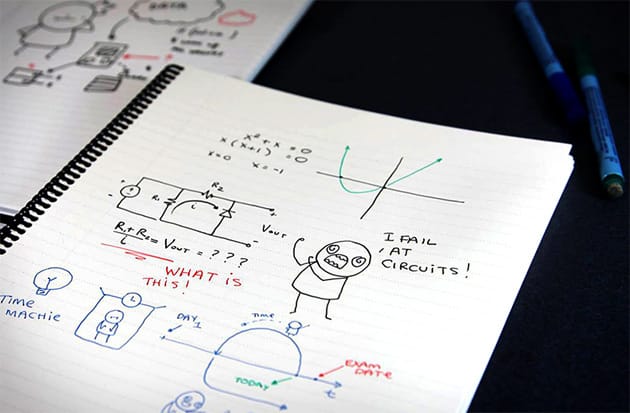 DATA
x² + x = 0
x(x+1) = 0
x=0 x=-1
R₂
R₁
L
VOUT
R₁+R₂/L = VOUT = ? ? ?
WHAT IS
THIS!
I FAIL
AT
CIRCUITS!
TIME
MACHIE
L
DAY
1
TIME
EXAM
DATE
TODAY
t